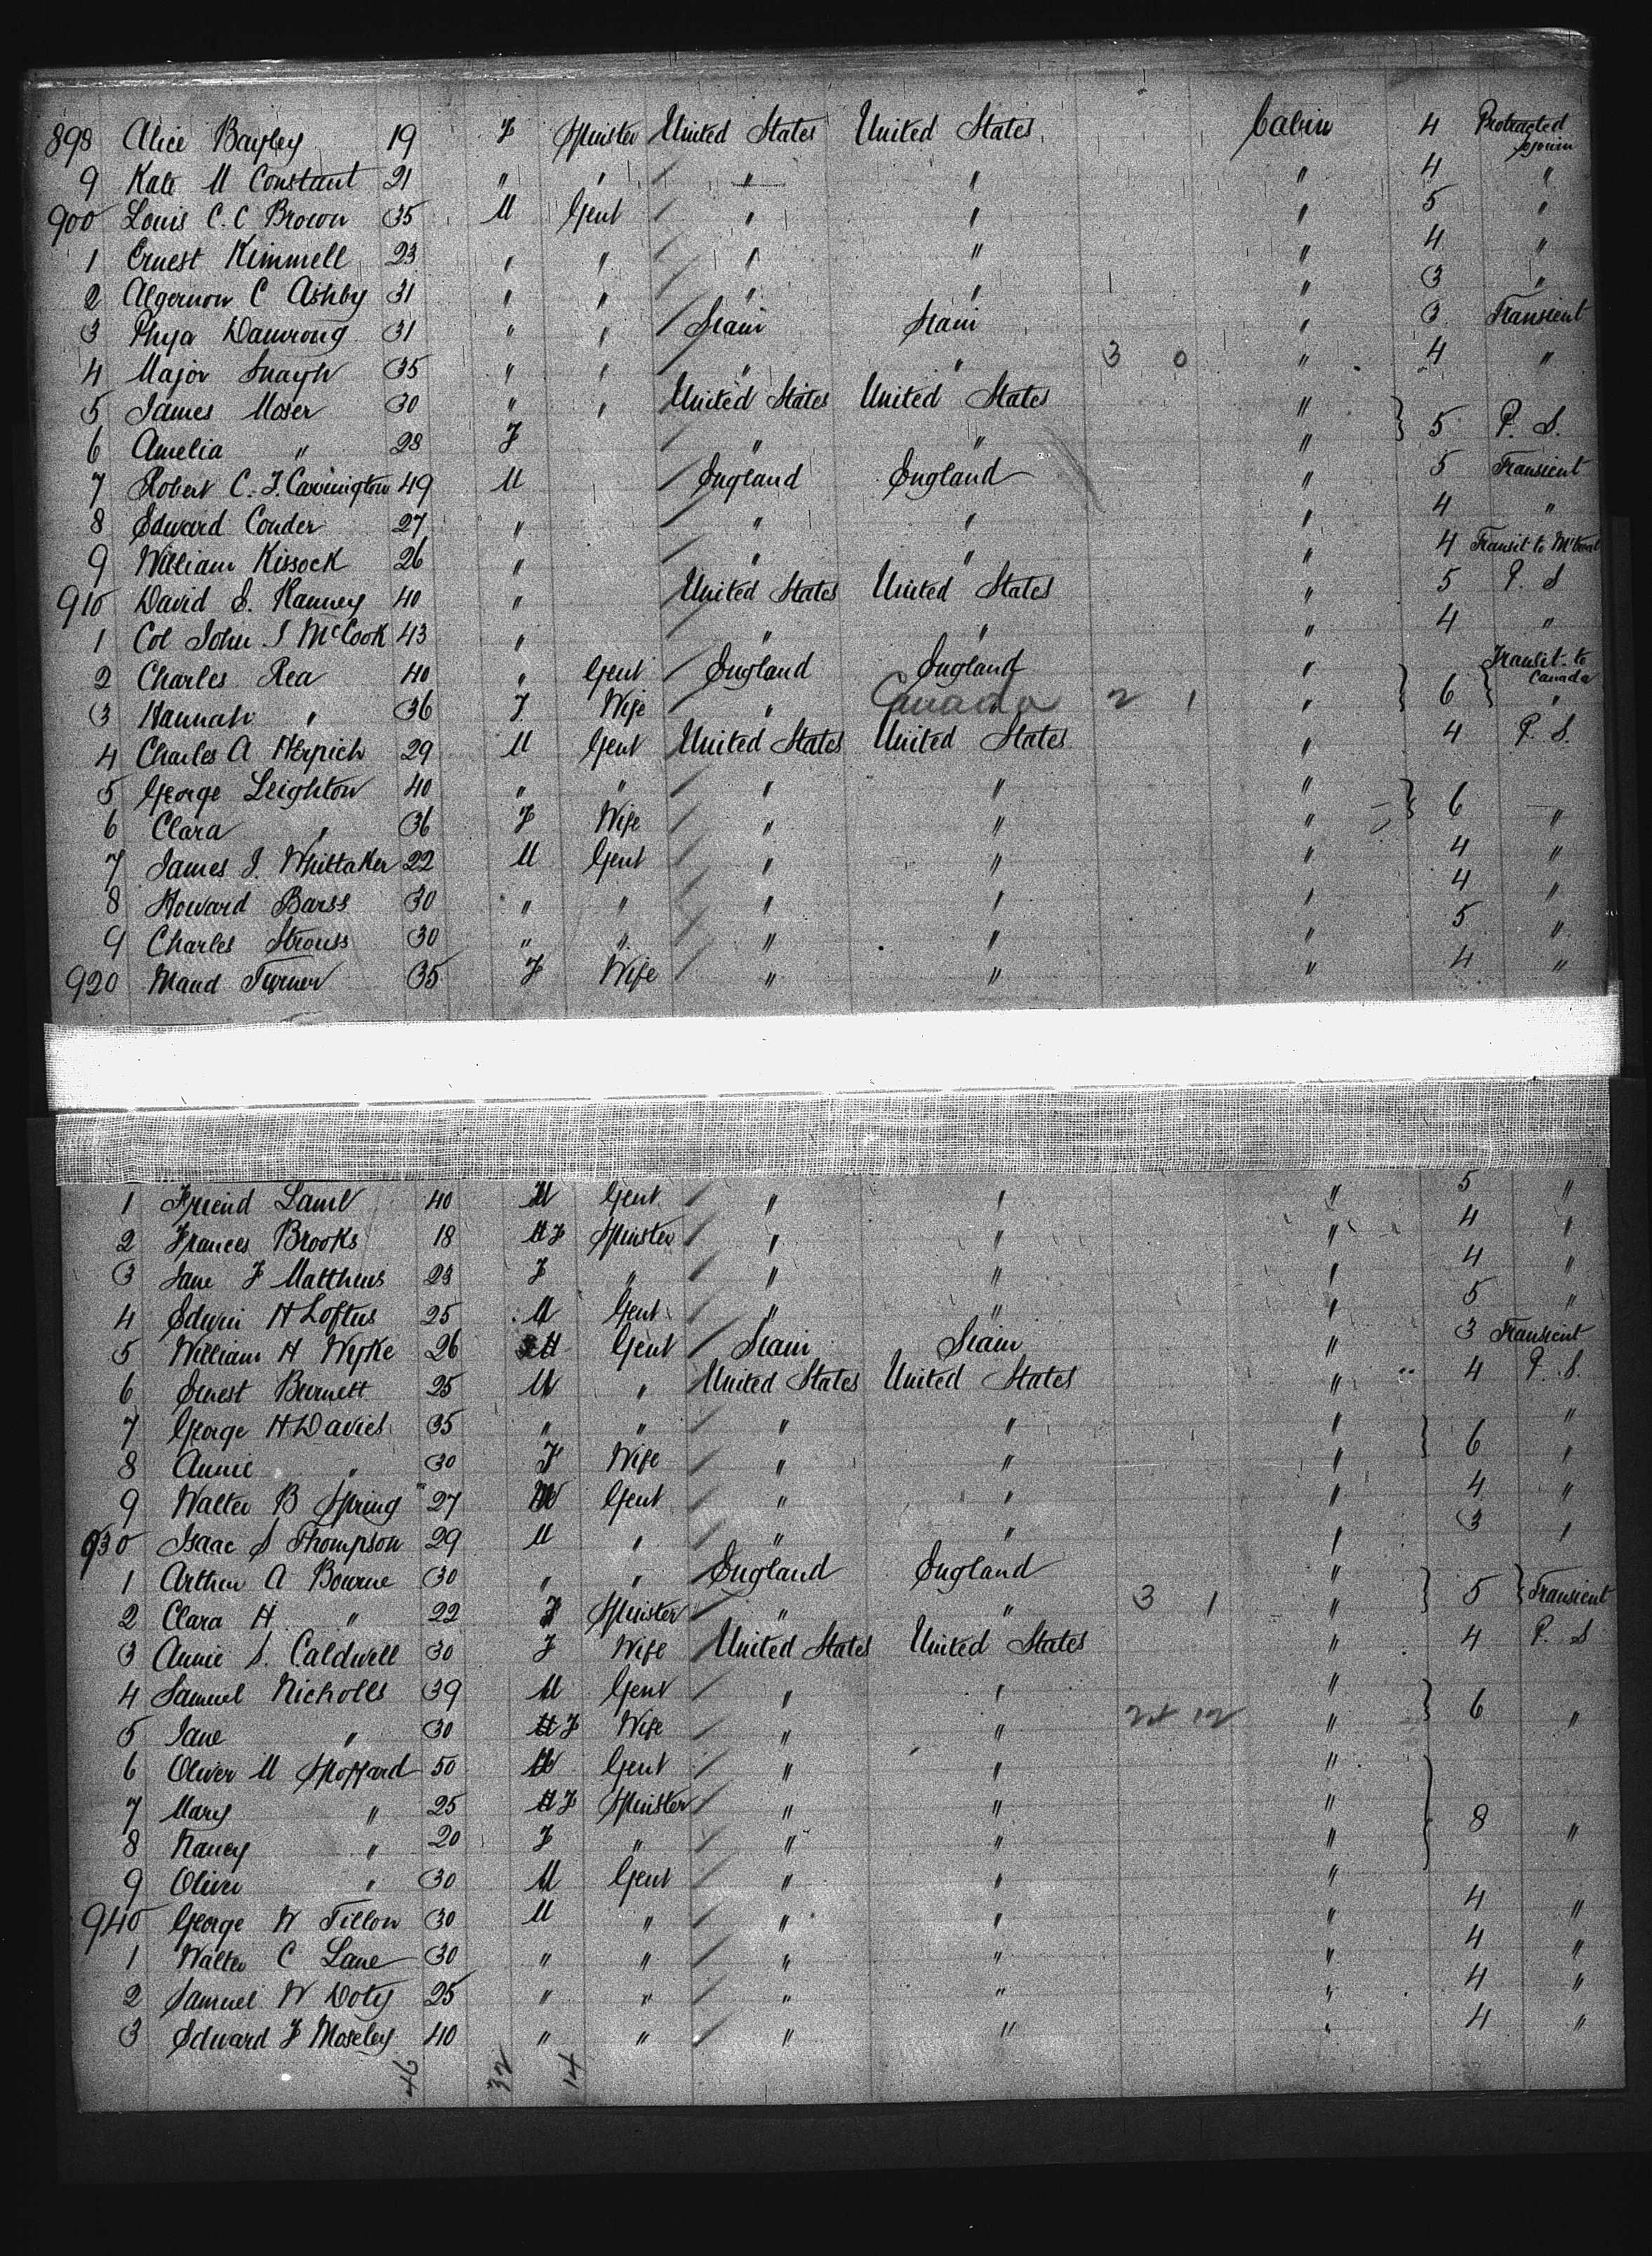 898 Alice Bayley 19 F Spinster United States United States Cabin 4 Protracted sojourn
9 Kate M Constant 21 " " " " " 4 "
900 Louis C. C Brown 35 M Gent " " " 5 "
1 Ernest Kimmell 23 " " " " " 4 "
2 Algernon C Ashby 31 " " " " " 3 "
3 Phya Damrong 31 " " Siam Siam " 3 Transient
4 Major 35 " " " " 3 0 " 4 "
5 James Moser 30 " " United States United States " } 5 P. S.
6 Amelia " 28 F " " "
7 Robert C. F. Carrington 49 M England England " 5 Transient
8 Edward Conder 27 " " " " 4 "
9 William Kissock 26 " " " " 4 Transit to M'treal
910 David S. Ranney 40 " United States United States " 5 P. S
1 Col John J McCook 43 " " " " 4 "
2 Charles Rea 40 " Gent England England " } 6 { Transit to Canada
3 Hannah " 36 F Wife " Canada 2 1 " "
4 Charles A Herpich 29 M Gent United States United States " 4 P. S.
5 George Leighton 40 " " " " " } 6 "
6 Clara " 36 F Wife " " "
7 James J. Whittaker 22 M Gent " " " 4 "
8 Howard Barss 30 " " " " " 4 "
9 Charles Strouss 30 " " " " " 5 "
920 Maud Turner 35 F Wife " " " 4 "
1 Friend Lamb 40 M Gent " " " 5 "
2 Frances Brooks 18 F Spinster " " " 4 "
3 Jane F Matthews 23 F " " " " 4 "
4 Edwin H Loftus 25 M Gent " " " 5 "
5 William H Wyke 26 M Gent Siam Siam " 3 Transient
6 Ernest Burnett 25 M " United States United States " 4 P. S.
7 George H Davies 35 " " " " " } 6 "
8 Annie " 30 F Wife " " " "
9 Walter B Spring 27 M Gent " " " 4 "
930 Isaac S Thompson 29 M " " " " 3 "
1 Arthur A Bourne 30 " " England England " } 5 { Transient
2 Clara H " 22 F Spinster " " 3 1 "
3 Annie S. Caldwell 30 F Wife United States United States " 4 P. S
4 Samuel Nicholls 39 M Gent " " " } 6 "
5 Jane " 30 F Wife " " 24 12 "
6 Oliver M Spoffard 50 M Gent " " " } 8 "
7 Mary " 25 F Spinster " " "
8 Nancy " 20 F " " " "
9 Oliver " 30 M Gent " " "
940 George W Tillow 30 M " " " " 4 "
1 Walter C Lane 30 " " " " " 4 "
2 Samuel W Doty 25 " " " " " 4 "
3 Edward F Moseley 40 " " " " " 4 "
46 32 14